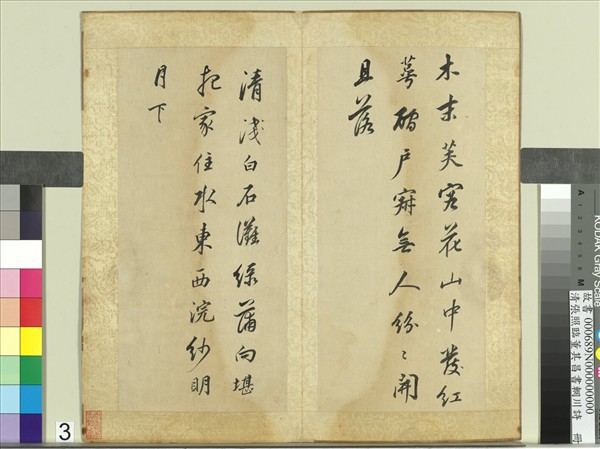 木末芙容花山中發紅
萼磵戶寂無人紛〻開
且落
清淺白石灘綠蒲向堪
把家住水東西浣紗明
月下
3
KODAK Gray Scale
A 1 2 3 4 5 6 M
故書 000689N000000000
清張照臨董其昌書輞川詩 冊